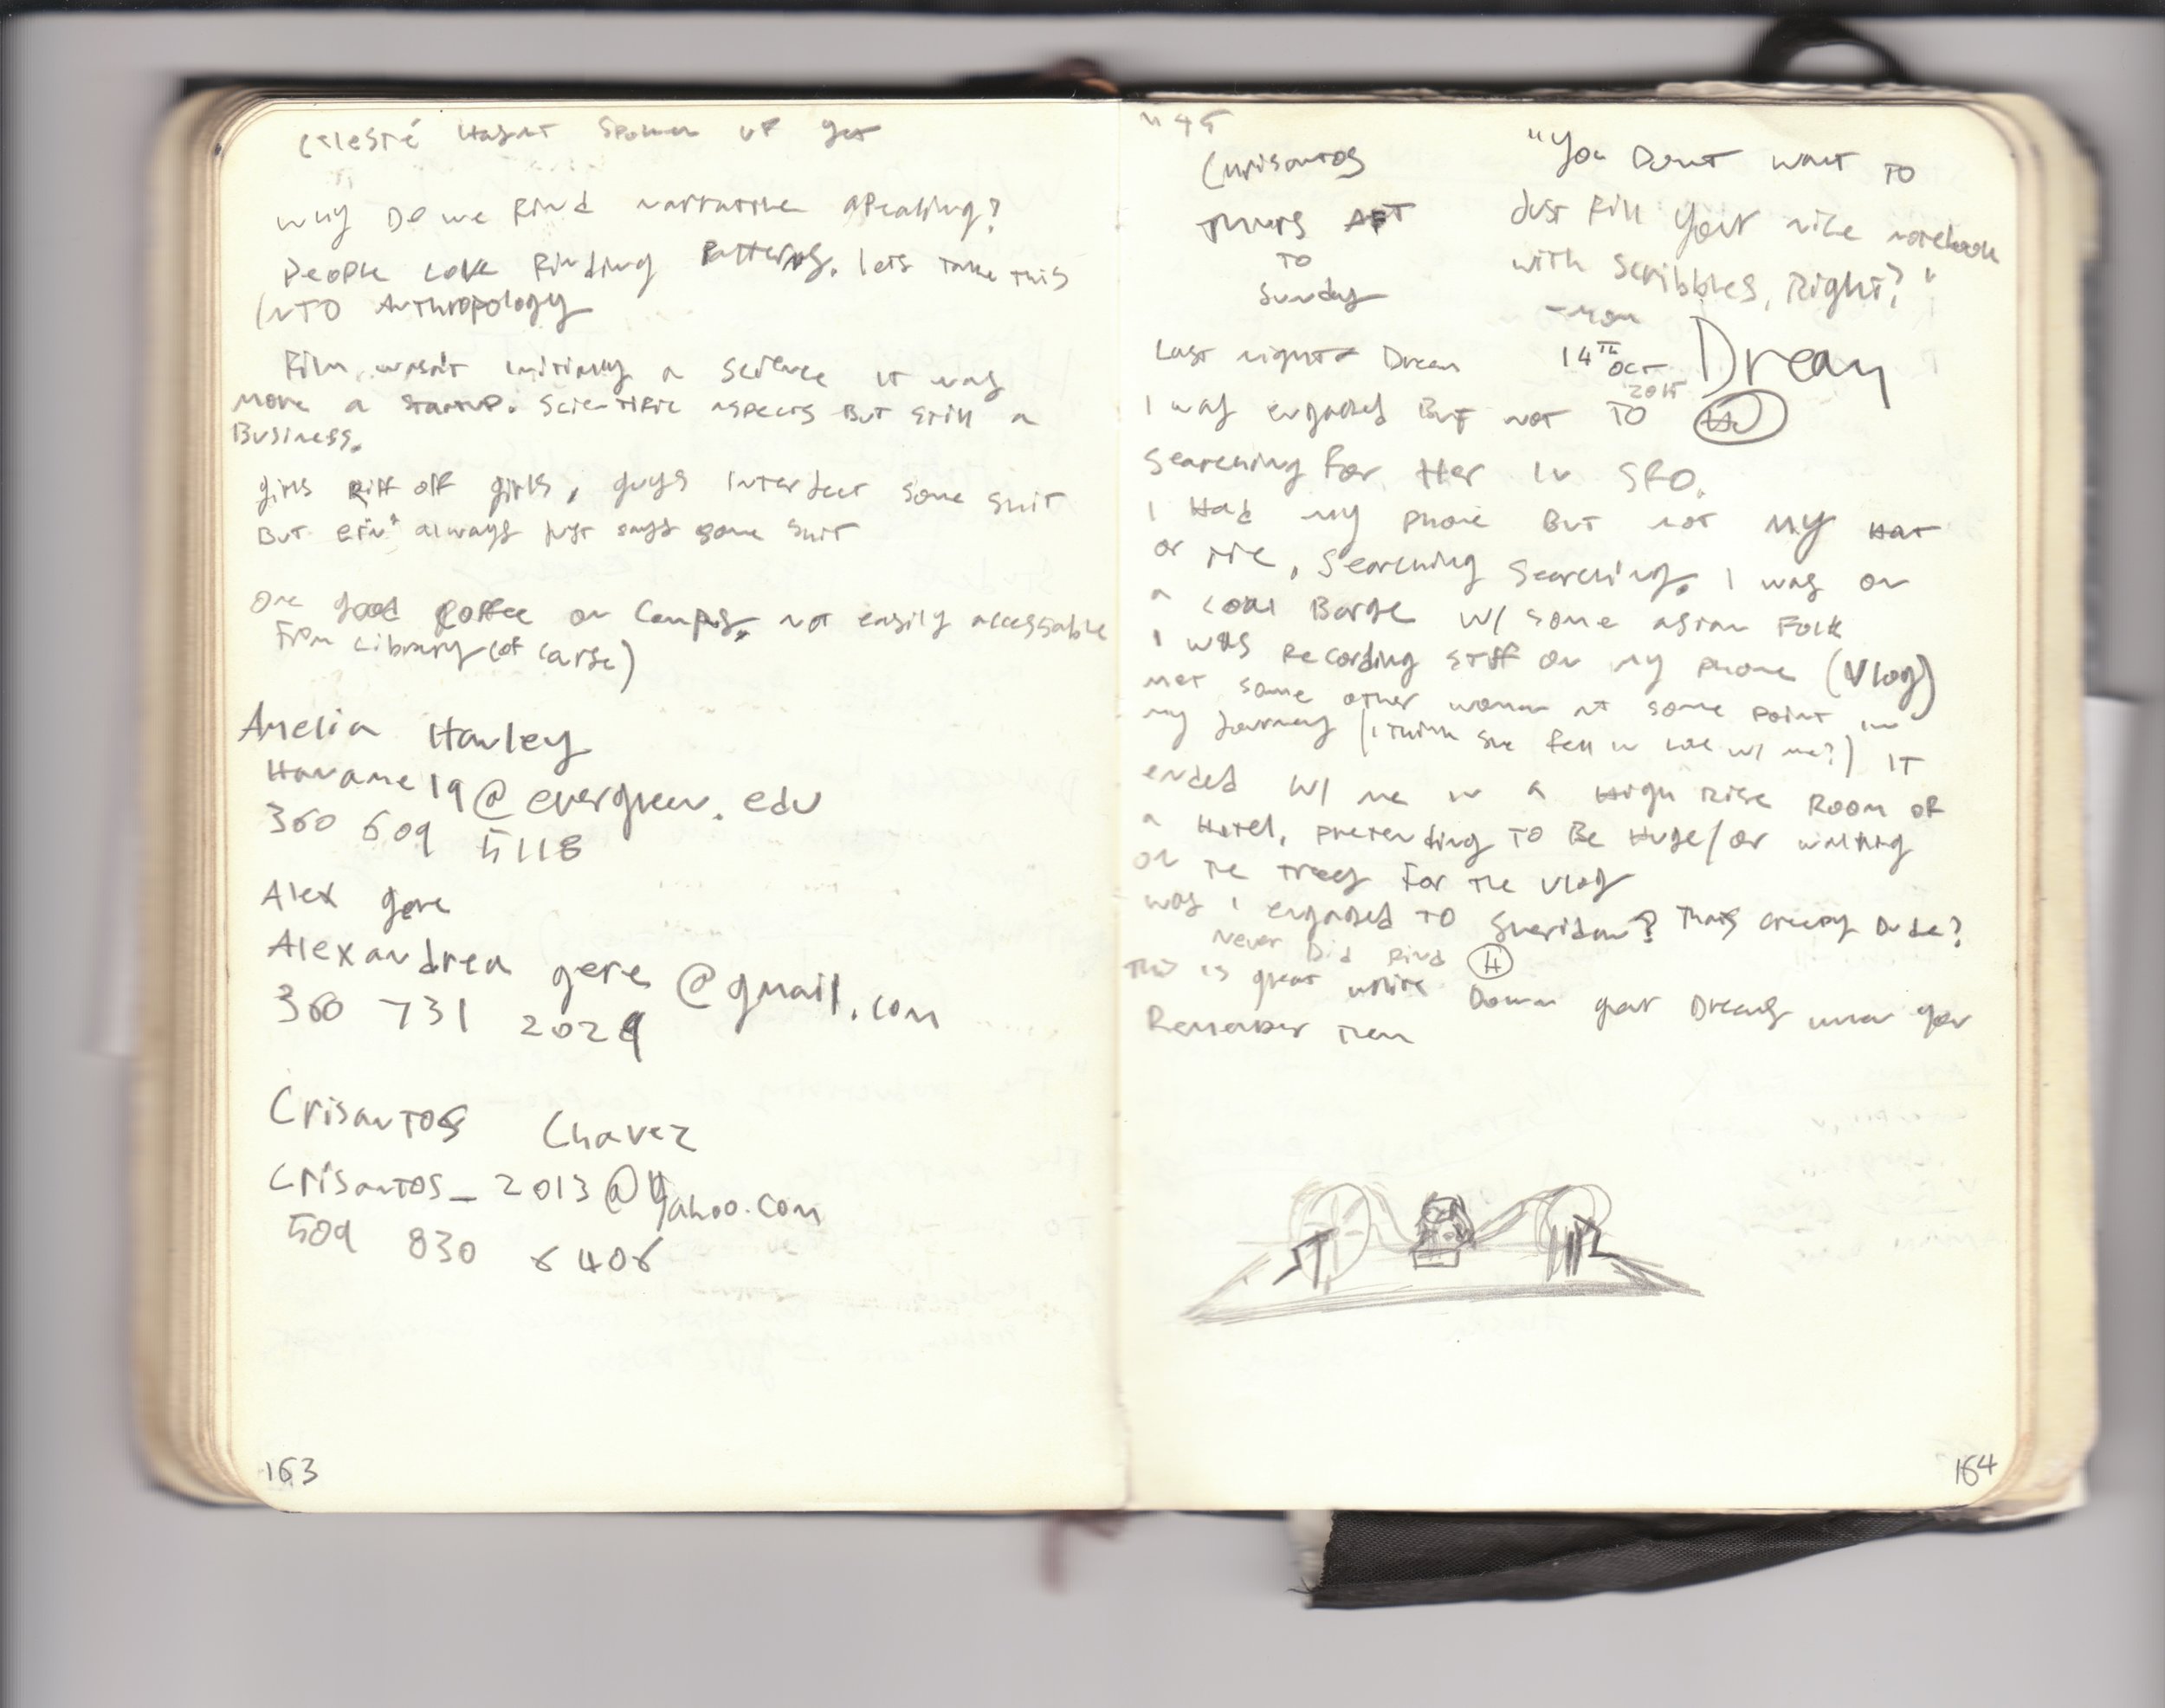 Celesté Hasnt Spoken UP yet
why Do we Find narrative apealing?
People Love Finding Patterns. Lets Take This
INTO Anthropology
Film wasn't initially a Science it was
More a STARTUP. Scientific aspects But still a
Business.
girls riff off girls, guys interject some shit
But always just says some shit
One good Coffee on Campus, not easily accessable
From Library (of carse)
Amelia Hanley
Haname19@evergreen.edu
360 609 5118
Alex gere
Alexandrea gere@gmail.com
360 731 2029
Crisantos Chavez
Crisantos_2013@Yahoo.com
509 830 6406
163
1145
Crisantos
Thurs AFT
TO
Sunday
"You Dont want TO
Just Fill your nice notebook
with Scribbles, Right?"
-Mom
Last nights Dream 14TH OCT 2015 Dream
I was engaged But not TO H
Searching For Her in SFO.
I Had my phone But not My Hat
or Searching Searching. I was on
a coal Barge w/ some asian Folk
I was Recording stuff on my phone (Vlog)
met some other woman at some point in
my journey (I think she fell in love w/ me?) IT
ended w/ me in a High Rise Room of
a Hotel, pretending TO Be Huge/or walking
on The Trees For The Vlog
was I engaged TO Sheridan? Thats creepy Dude?
Never Did Find H
This is great write Down your Dreams when you
Remember Them
164